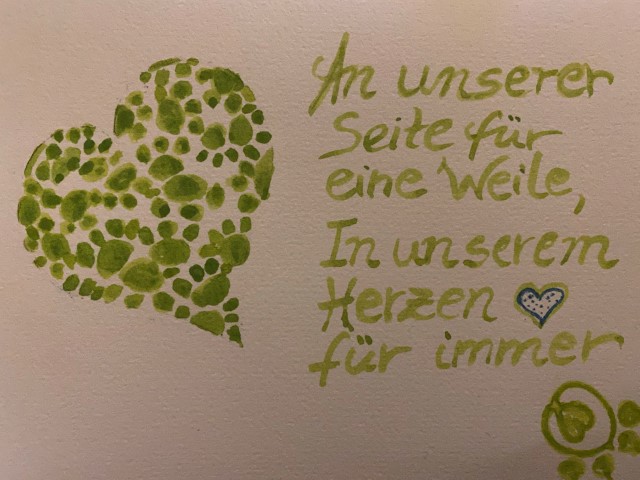 An unserer
Seite für
eine Weile,
In unserem
Herzen
für immer